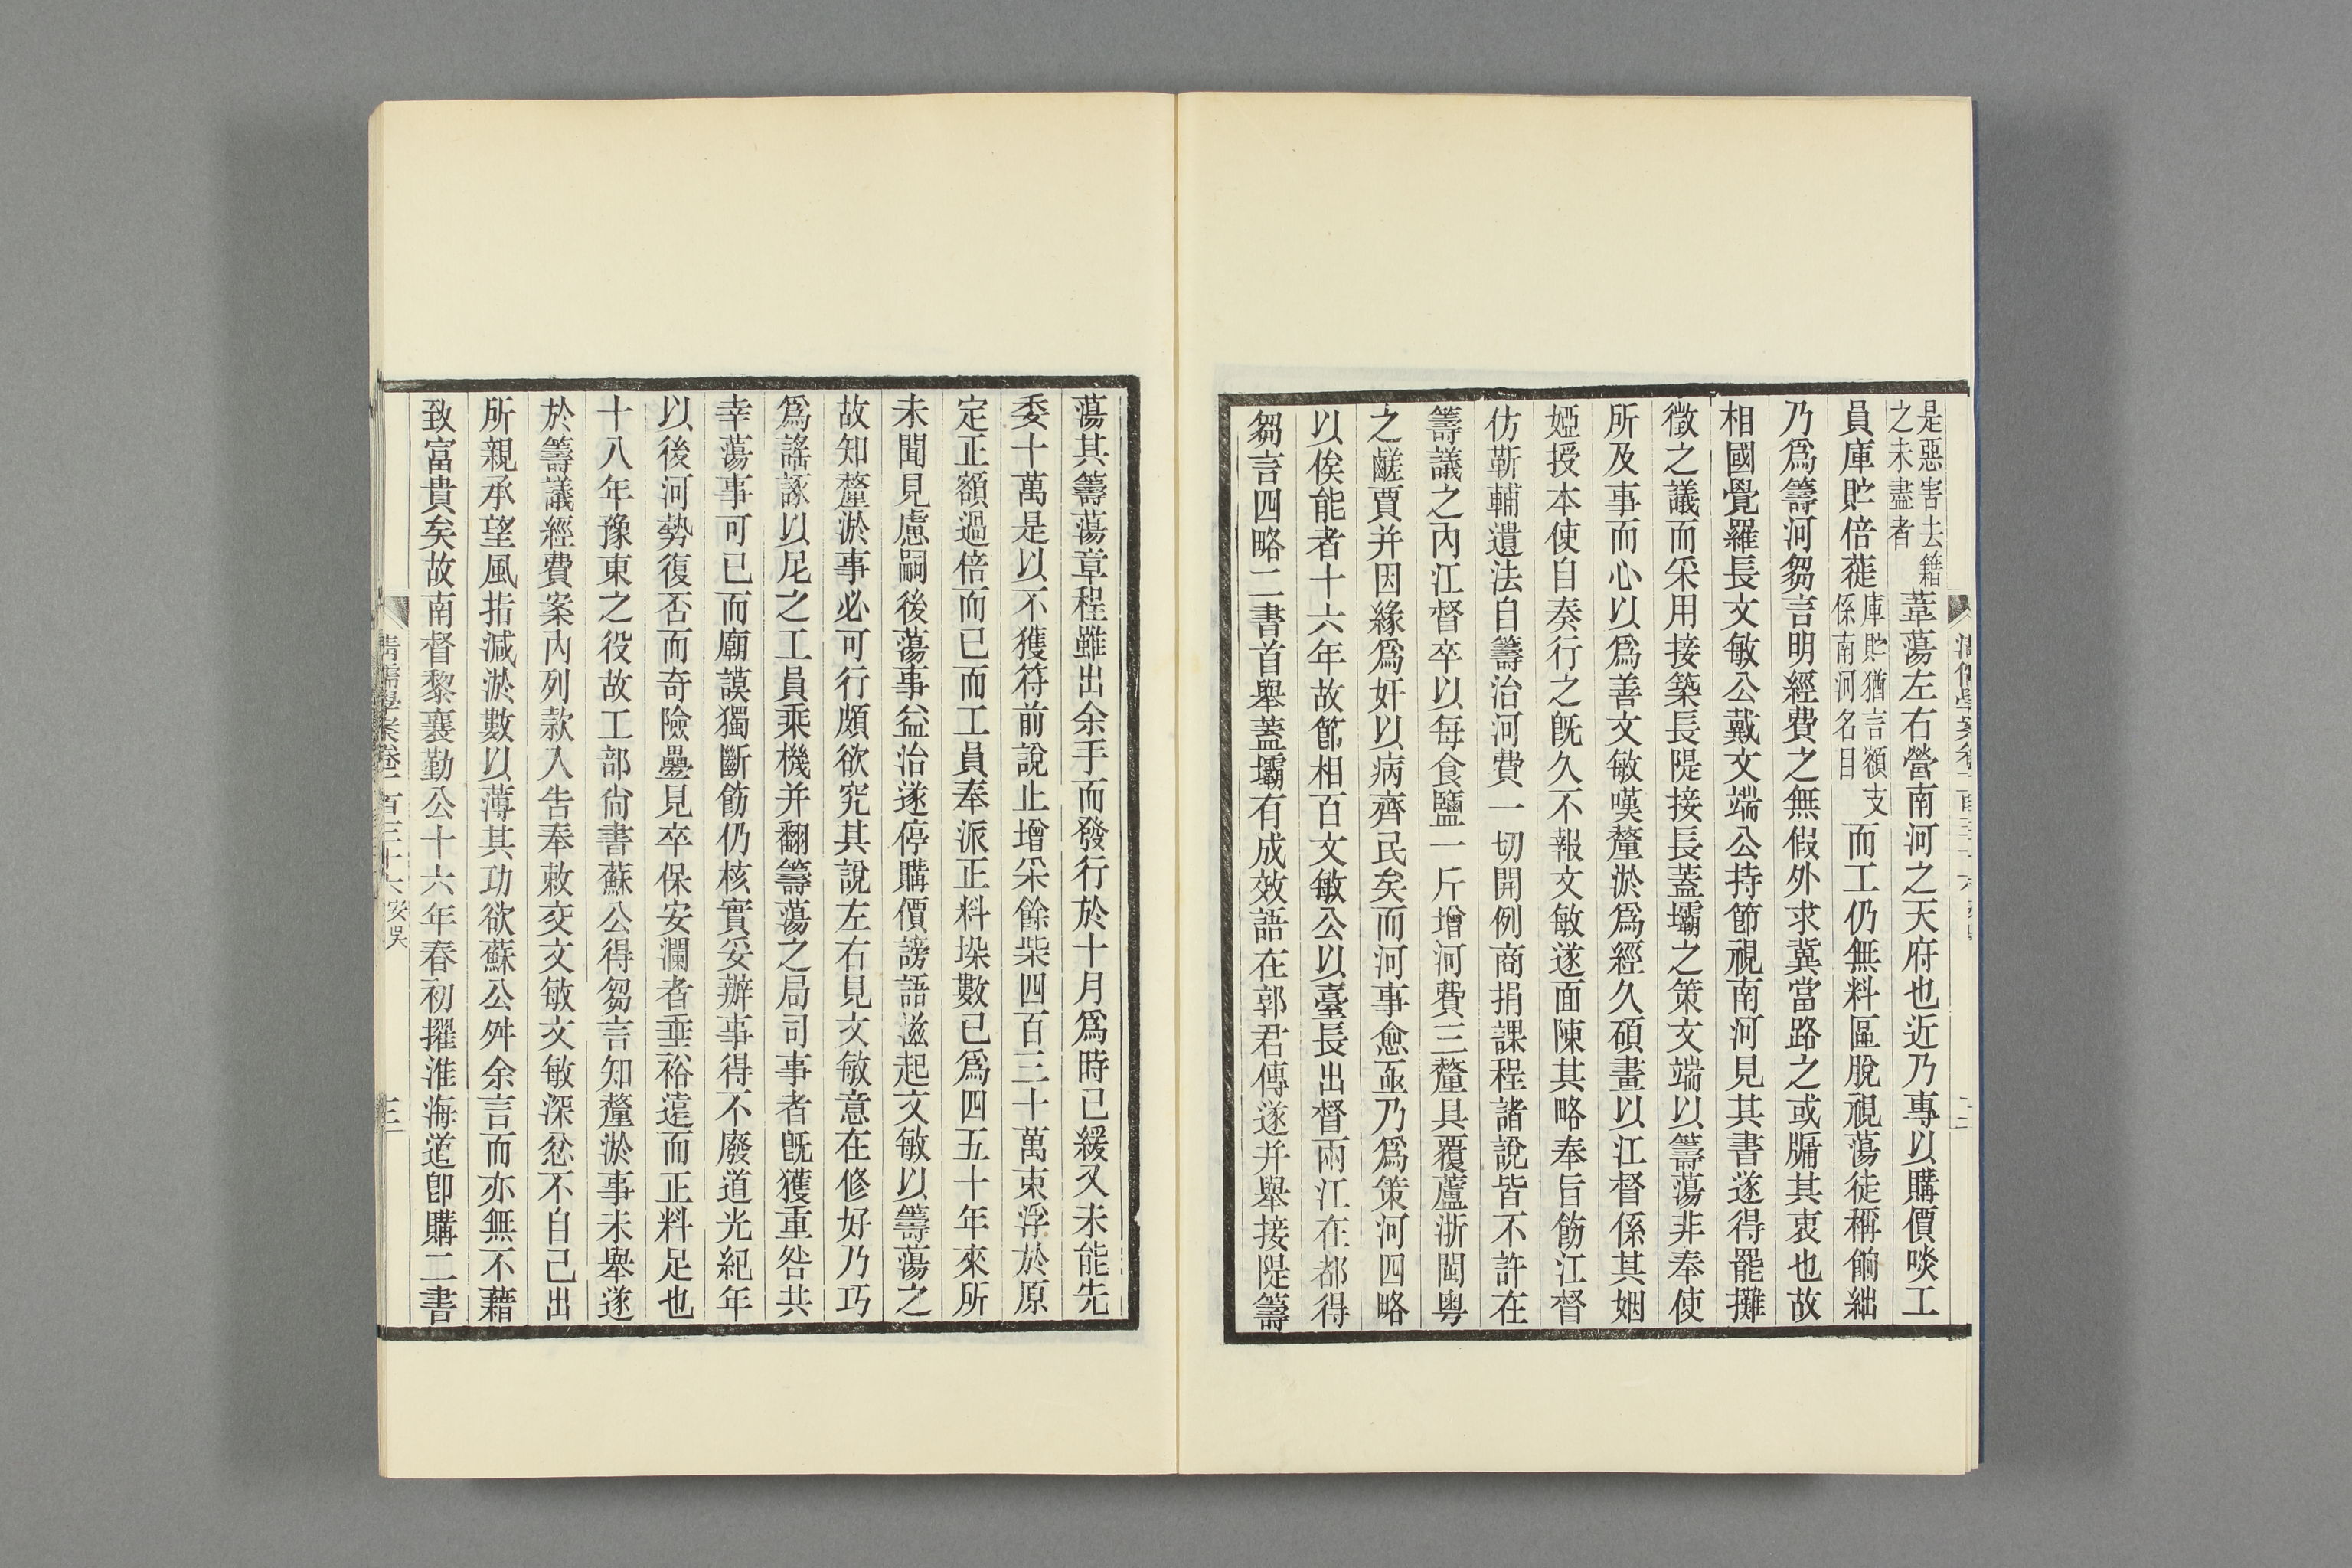 是惡害去籍之未盡者葦蕩左右營南河之天府也近乃專以購價啖工
員庫貯倍蓰庫貯猶言額支係南河名目而工仍無料區脫視蕩徒稱餉絀
乃爲籌河芻言明經費之無假外求冀當路之或牖其衷也故
相國覺羅長文敏公戴文端公持節視南河見其書遂得罷攤
徵之議而采用接築長隄接長蓋壩之策文端以籌蕩非奉使
所及事而心以爲善文敏嘆釐淤爲經久碩畫以江督係其姻
婭授本使自奏行之旣久不報文敏遂面陳其略奉旨飭江督
仿靳輔遺法自籌治河費一切開例商捐課程諸說皆不許在
籌議之內江督卒以每食鹽一斤增河費三釐具覆蘆浙閩粵
之鹺賈并因緣爲奸以病齊民矣而河事愈亟乃爲策河四略
以俟能者十六年故節相百文敏公以臺長出督兩江在都得
芻言四略二書首舉蓋壩有成效語在郭君傳遂并舉接隄籌
蕩其籌蕩章程雖出余手而發行於十月爲時已緩又未能先
委十萬是以不獲符前說止增采餘柴四百三十萬束浮於原
定正額過倍而已而工員奉派正料垛數已爲四五十年來所
未聞見慮嗣後蕩事益治遂停購價謗語滋起文敏以籌蕩之
故知釐淤事必可行頗欲究其說左右見文敏意在修好乃巧
爲謠諑以尼之工員乘機并翻籌蕩之局司事者旣獲重咎共
幸蕩事可已而廟謨獨斷飭仍核實妥辦事得不廢道光紀年
以後河勢復否而奇險疊見卒保安瀾者垂裕遠而正料足也
十八年豫東之役故工部尙書蘇公得芻言知釐淤事未舉遂
於籌議經費案內列款入告奉敕交文敏文敏深忿不自己出
所親承望風指減淤數以薄其功欲蘇公舛余言而亦無不藉
致富貴矣故南督黎襄勤公十六年春初擢淮海道卽購二書
清儒學案卷一百三十六 安吳 三